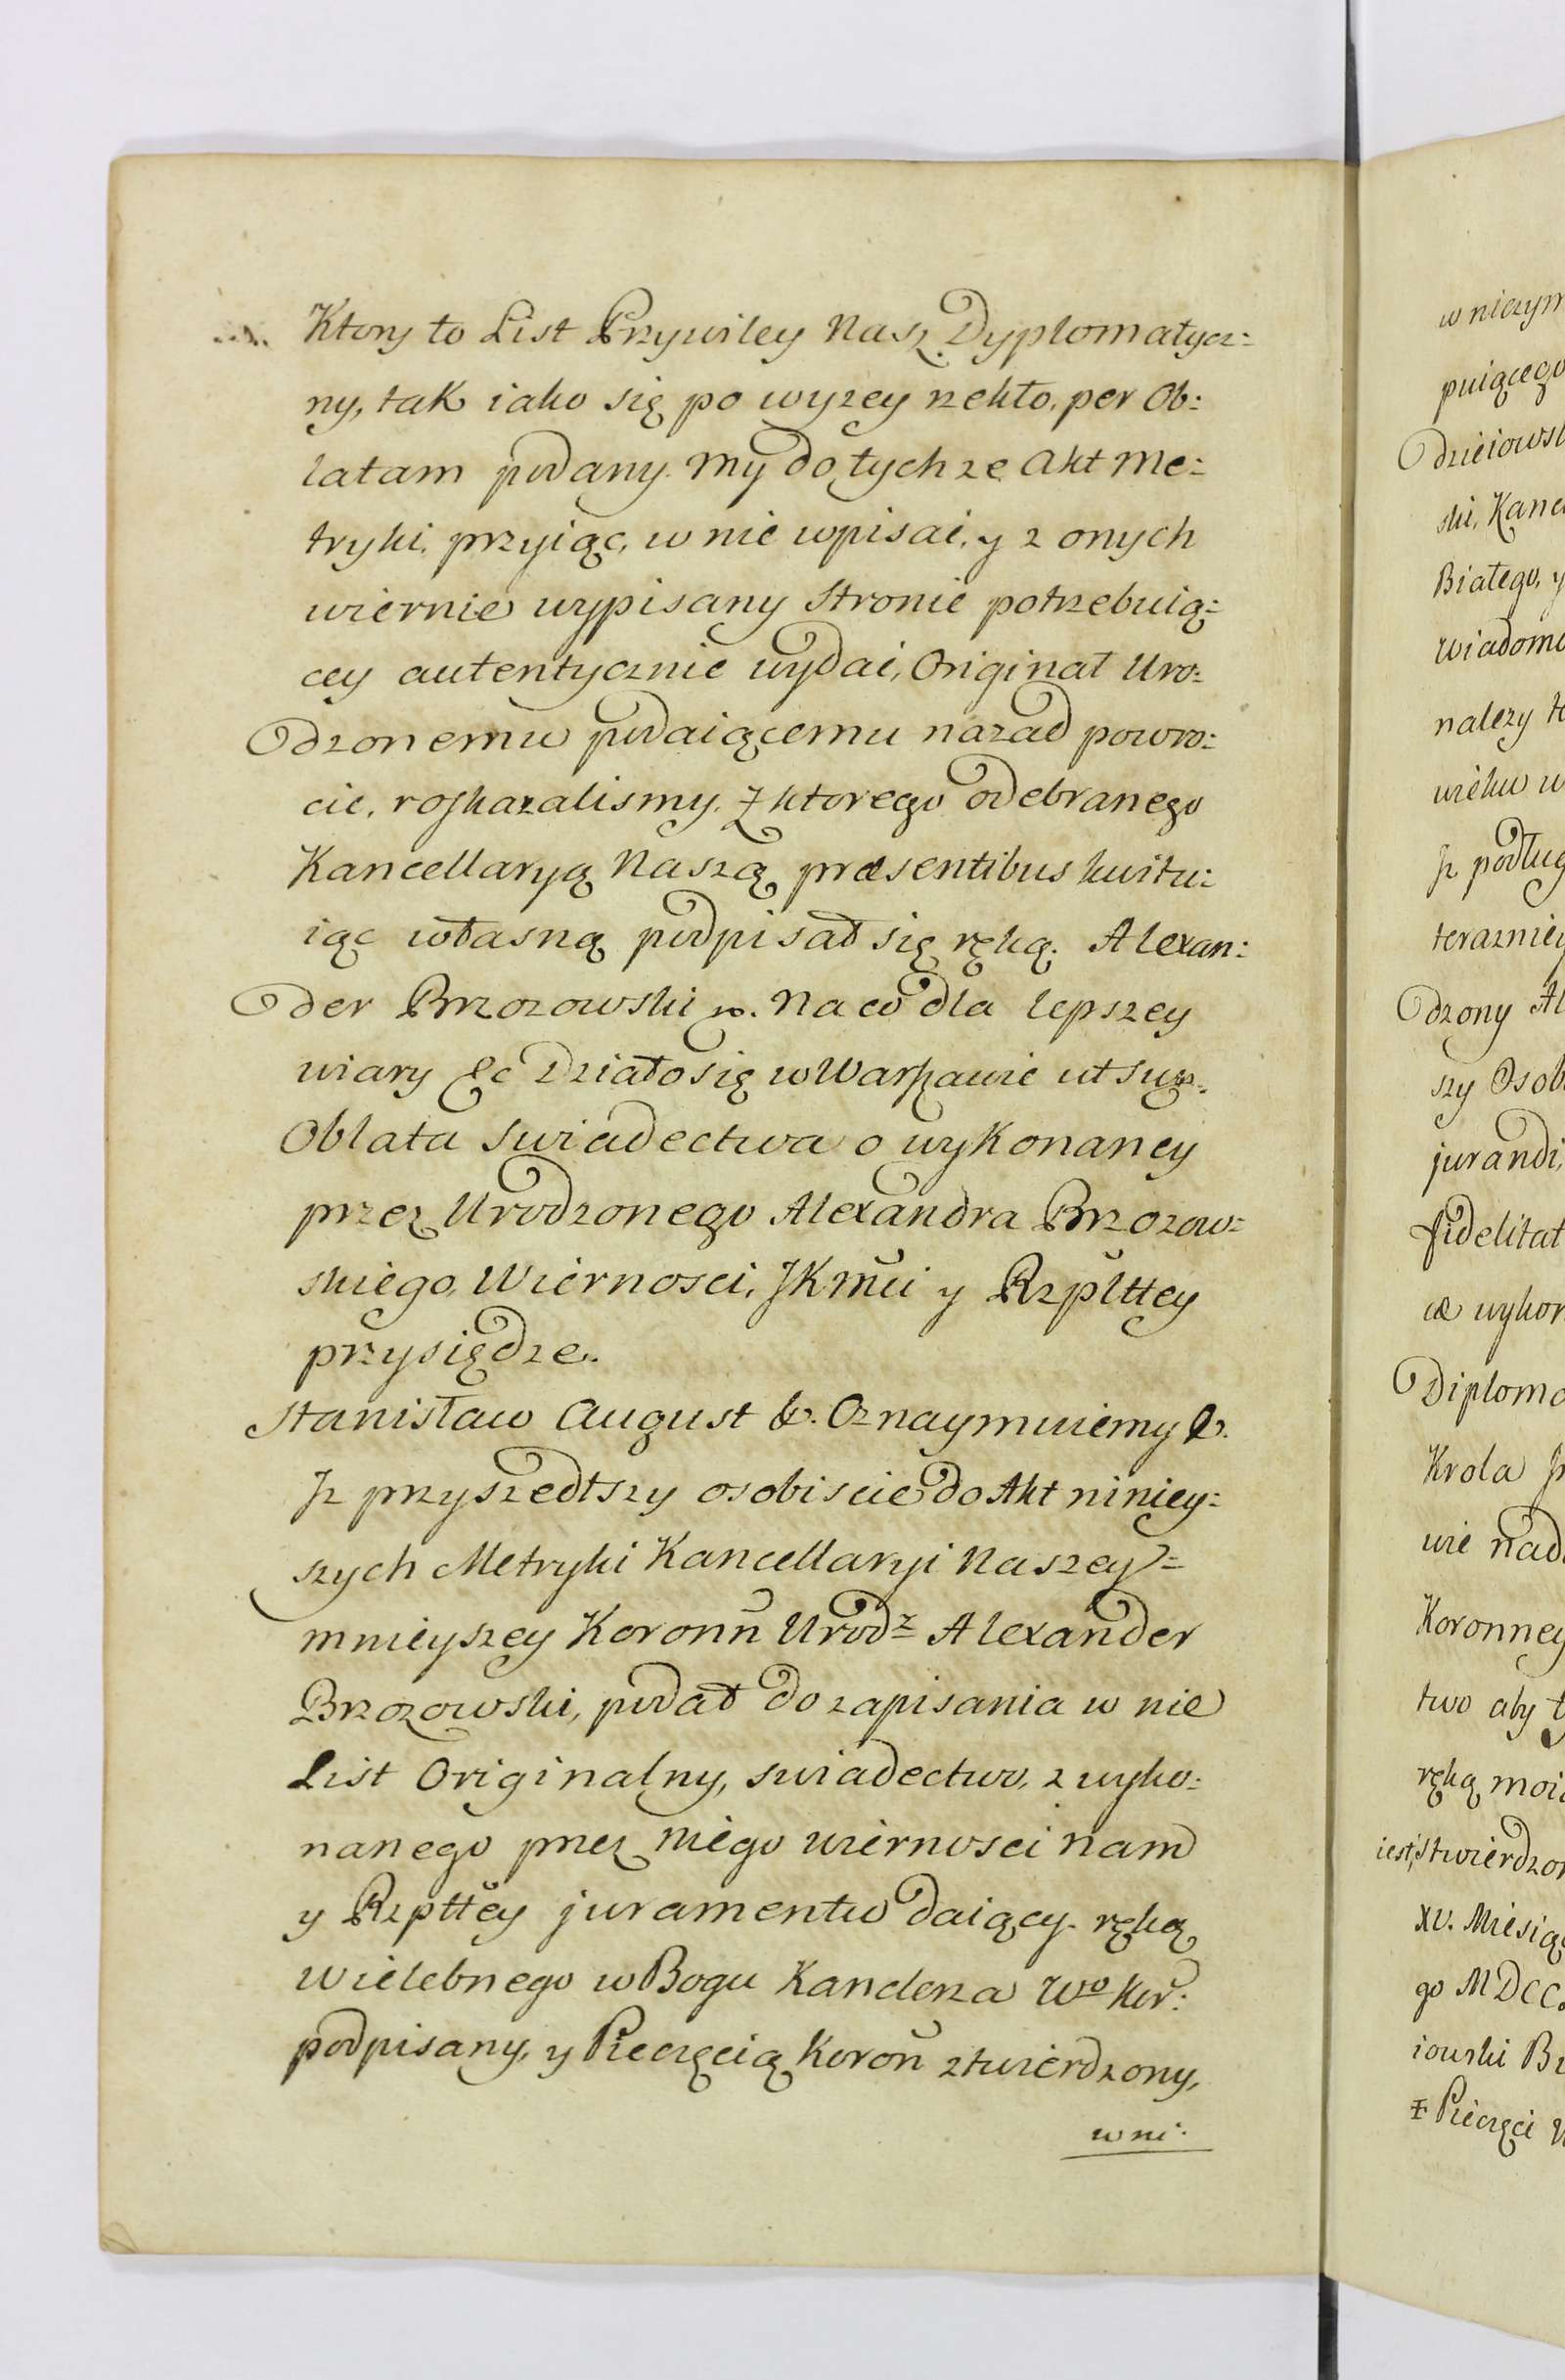 Ktory to List Przywiley Nasz Dyplomatycz=
ny, tak iako się po wyzey rzekło, per Ob=
latam podany. My do tychze Akt Me=
tryki, przyiąc, w nie wpisać, y z onych
wiernie wypisany Stronie potrzebuią=
cey autentycznie wydać, Originał Uro=
dzonemu podaiącemu nazad powro=
cić, roskazalismy. Z ktorego odebranego
Kancellaryą Naszą præsentibus kwitu=
iąc własną podpisał się ręką. Alexan=
der Brzozowski mp. Na co dla lepszey
wiary &c Działo się w Warszawie ut sup.
Oblata Swiadectwa o wykonaney
przez Urodzonego Alexandra Brzozow=
skiego, Wiernosci, JKmci y Rzplttey
przysiędze.
Stanisław August &. Oznaymuiemy &.
Jz przyszedłszy osobiscie do Akt niniey=
szych Metryki Kancellaryi Naszey=
mnieyszey Koronn Urodz Alexander
Brzozowski, podał do zapisania w nie
List Originalny, swiadectwo, z wyko=
nanego przez niego wiernosci nam
y Rzpttey juramentu daiący. ręką
Wielebnego w Bogu Kanclerza Wo Kor:
podpisany, y Pieczęcią Koron ztwierdzony,
w ni:
w niczym
puiącego
dzieiowsk
ski, Kanc
Białego, y
wiadomo
nalezy
wieku w
Jz podług
terazniey
dzony Al
szy Osob
jurandi,
fidelitat
cæ wykon
Diploma
Krola
wie nad
Koronney
two aby
ręką moi
iest, Stwierdzon
XV. Miesią
go MDCC.
iowski Bi
Pieczęci